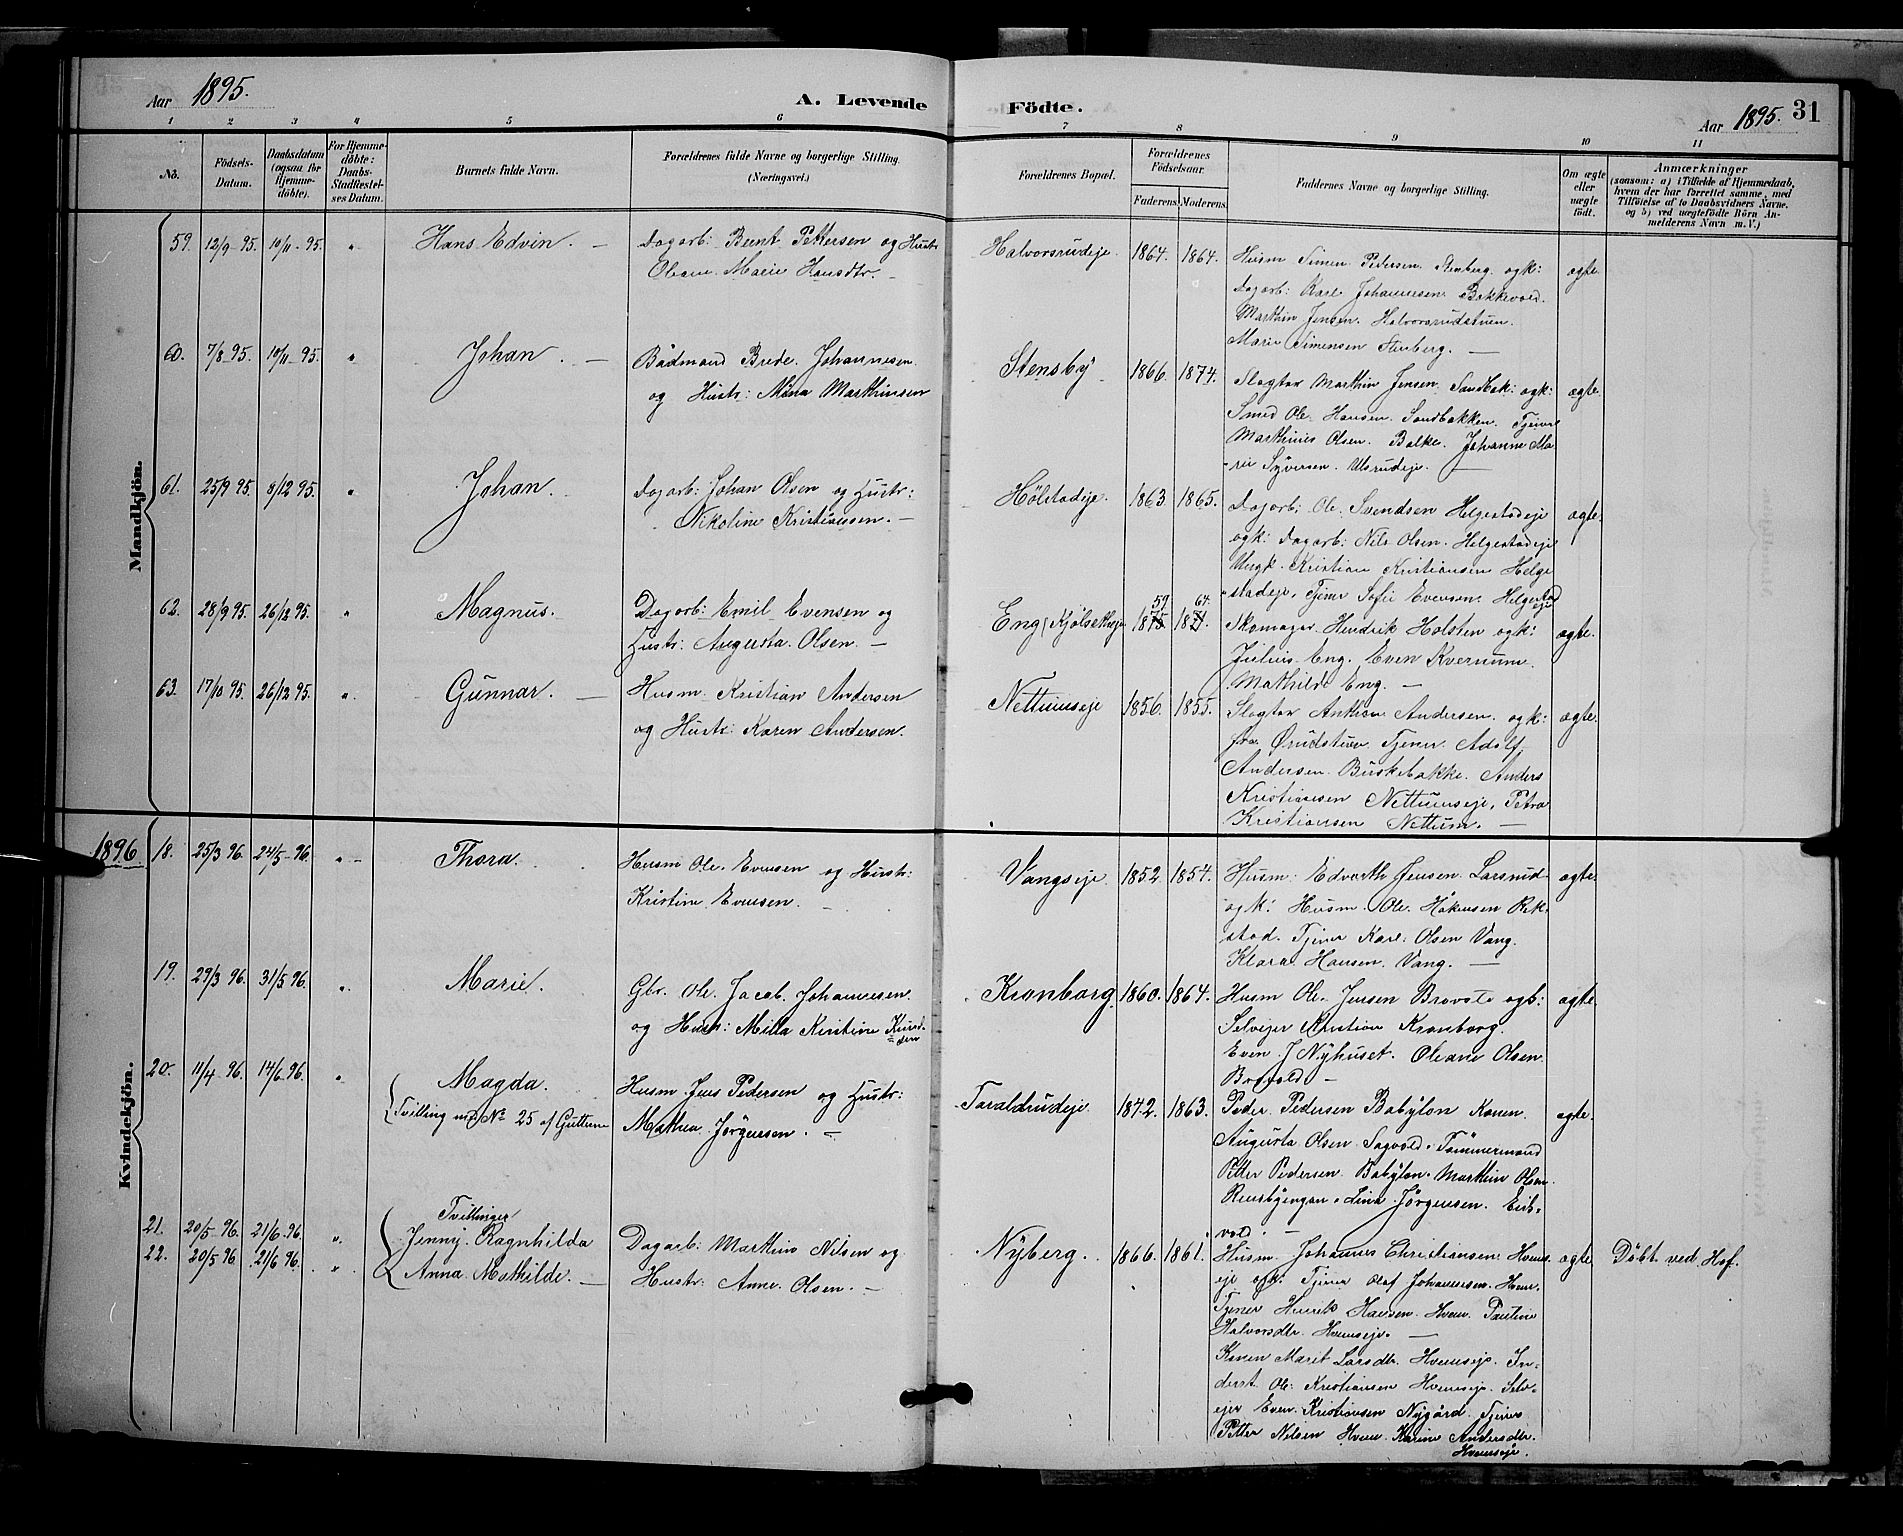 Aar 1895. A. Levende Födte. Aar 1895. 31
1 2 3 4 5 6 7 8 9 10 11
No.
Födsels-Datum.
Daabsdatum (ogsaa for Hjemmedöbte).
For Hjemmedöbte: Daabs-Stadfæstelses Datum.
Barnets fulde Navn.
Forældrenes fulde Navne og borgerlige Stilling. (Næringsvei.)
Forældrenes Bopæl.
Forældrenes Födselsaar.
Faderens. Moderens.
Faddernes Navne og borgerlige Stilling.
Om ægte eller uægte födt.
Anmærkninger
(saasom: a) i Tilfælde af Hjemmedaab, hvem der har forrettet samme, med Tilföielse af to Daabsvidners Navne, og b) ved uægtefödte Börn Anmelderens Navn m. V.)
Mandkjön.
59. 12/9 95. 10/11 95. " Hans Edvin. — Dagarb: Bernt Pettersen og Hustr
Oleane Marie Hansdtr. —
Halvorsrudeje. 1864. 1864. Husm Simen Pedersen Stenberg. ogk:
Dagarb: Karl Johannesen Bakkevold.
Marthin Jensen. Halvorsrudstuen.
Marie Simensen Stenberg. —
ægte.
60. 7/8 95. 10/11 95. " Johan. — Bådmand Brede Johannesen
og Hustr: Mina Marthinsen
Stensby 1866. 1874. Slagter Marthin Jensen Sandbak: ogk:
Smed Ole Hansen Sandbakken. Tjener
Marthines Olsen. Balke. Johanne Ma
rie Syversen. Ulsrudeje. —
ægte.
61. 25/9 95. 8/12 95. " Johan. Dagarb: Johan Olsen og Hustr:
Nikoline Kristiansen. —
Hölstadeje. 1863. 1865. Dagarb: Ole Svendsen Helgestadeje
ogk: Dagarb: Nils Olsen. Helgestadeje
Ungk. Kristian Kristiansen Helge
stadeje, Tjener Sofie Evensen. Helgestad
eje
ægte.
62. 28/9 95. 26/12 95. " Magnus. Dagarb: Emil Evensen og
Hustr: Augusta Olsen. —
Eng (Kjölsetheje 1875 59 1871. 64. Skomager Hendrik Holsten ogk:
Julius Eng. Even Kvernum.
Mathilde Eng. —
ægte.
63. 17/10 95. 26/12 95. " Gunnar. — Husm. Kristian Andersen
og Hustr: Karen Andersen.
Nettumseje 1856. 1855. Slagter Anthon Andersen. ogk:
fra Ørudstuen Tjener Adolf
Andersen. Buskebakke. Anders
Kristiansen Nettumseje. Petra
Kristiansen Nettum. —
ægte.
1896
Kvindekjön.
18. 25/3 96. 24/5 96. " Thora. Husm Ole Evensen og Hustr:
Kristine Evensen. —
Vangseje. 1852 1854. Husm: Edvarth Jensen Larsrud
ogk: Husm. Ole Håkensen Rek
stad. Tjener Karl Olsen Vang.
Klara Hansen. Vang. —
ægte.
19. 29/3 96. 31/5 96. " Marie. Gbr. Ole Jacob Johannesen
og Hustr: Milla Kristine
Kronborg 1860. 1864. Husm Ole Jensen ogk:
Selvejer Kristian Kronborg.
Even J Nyhuset. Oleane Olsen
ægte
20. 11/4 96. 14/6 96. " Magda.
(Tvilling med No 25 af Guttene
Husm Jens Pedersen og Hustr:
Mathea Jörgensen. —
Taraldrudeje 1842. 1863. Peder Pedersen Babylon Konen
Augusta Olsen Sagvold. Tömmermand
Petter Pedersen. Babylon. Marthin Olsen
Rensbyengen. Lina Jörgensen. Eids
vold. —
ægte.
Tvillinger
21. 20/5 96. 21/6 96. " Jenny Ragnhilda Dagarb: Marthin Nilsen og
22. 20/5 96. 21/6 96. " Anna Mathilde. — Hustr: Anne Olsen. —
Nyberg. 1866. 1861. Husm. Johannes Christiansen Hvems
eje ogk: Tjener Olaf Johannesen. Hvem.
Tjener Henrik Hansen Hvem. Pauline
Halvorsdtr. Hvemseje. —
Konen Marit Larsdtr. Hvemseje. In
derst Ole Kristiansen Hvemseje. Selv
ejer Even Kristiansen Nygård. Tjener
Petter Nilsen Hvem. Karine Andersdtr.
Hvemseje.
ægte Döbt ved Hof.